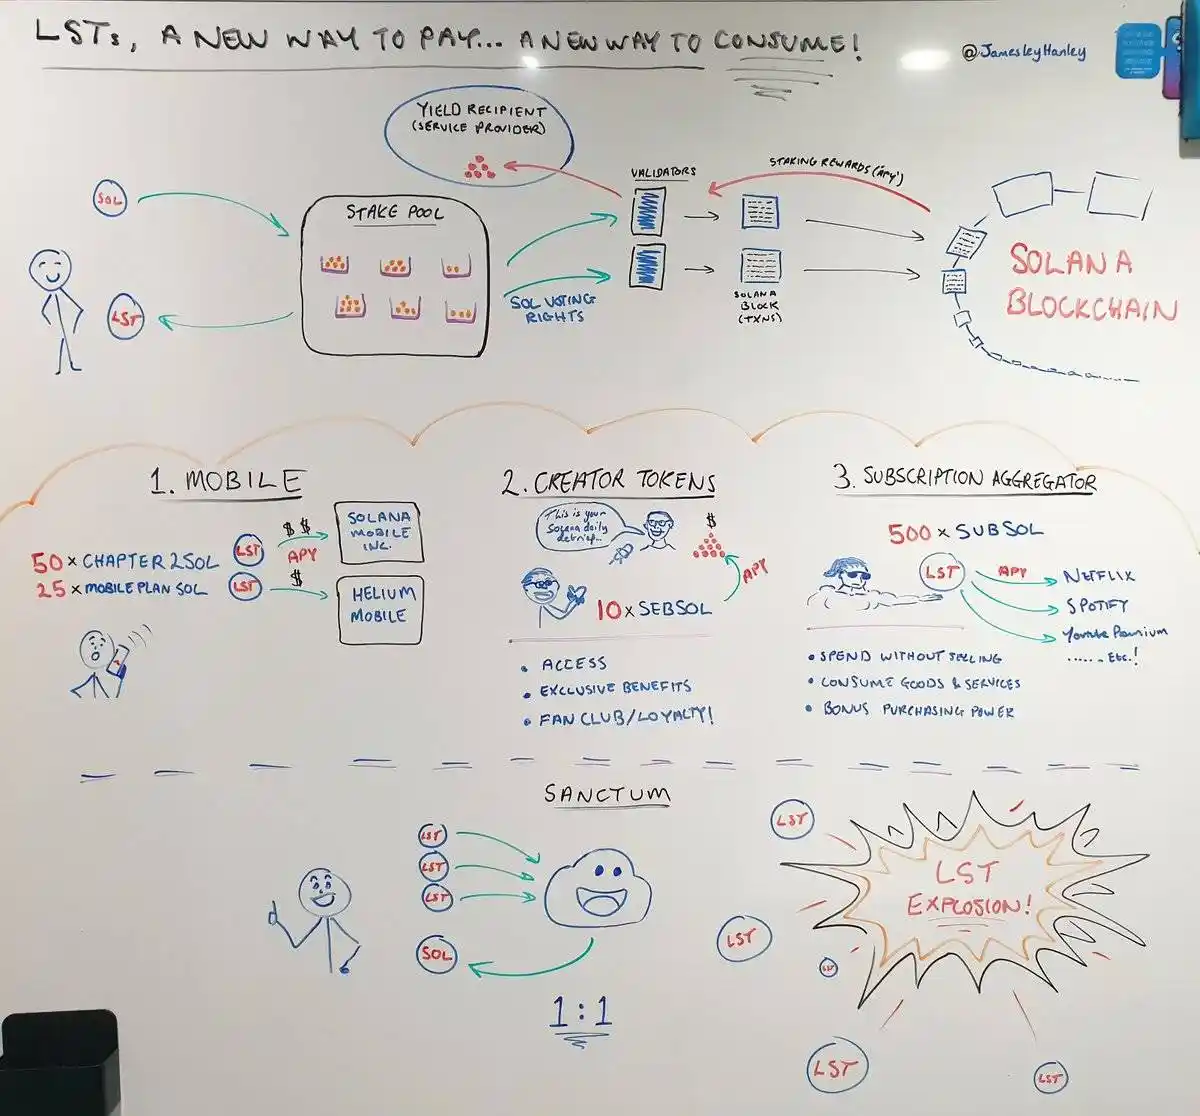 LSTs, A NEW WAY TO PAY... A NEW WAY TO CONSUME!
@JamesleyHanley
YIELD RECIPIENT
(SERVICE PROVIDER)
SOL
LST
STAKE POOL
SOL VOTING
RIGHTS
VALIDATORS
STAKING REWARDS ('APY')
SOLANA
BLOCK
(TXNS)
SOLANA
BLOCKCHAIN
1. MOBILE
50 x CHAPTER 2 SOL
LST
$ $
APY
SOLANA
MOBILE
INC.
25 x MOBILE PLAN SOL
LST
$
HELIUM
MOBILE
2. CREATOR TOKENS
This is your
Solana daily
debrief...
$
APY
10 x SEBSOL
• ACCESS
• EXCLUSIVE BENEFITS
• FAN CLUB/LOYALTY!
3. SUBSCRIPTION AGGREGATOR
500 x SUBSOL
LST
APY
NETFLIX
SPOTIFY
Youtube Premium
...... Etc.!
• SPEND WITHOUT SELLING
• CONSUME GOODS & SERVICES
• BONUS PURCHASING POWER
SANCTUM
LST
LST
LST
SOL
1:1
LST
EXPLOSION!
LST
LST
LST
LST
LST